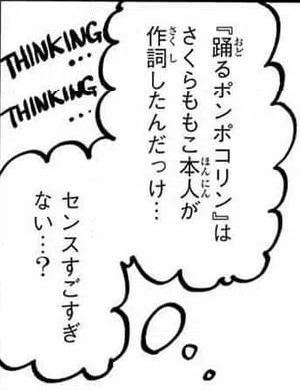 THINKING
…
THINKING
…
『踊るポンポコリン』は
さくらももこ本人が
作詞したんだっけ…
センスすごすぎ
ない…？